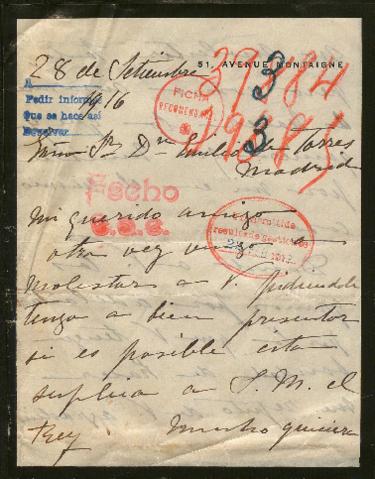 51, AVENUE MONTAIGNE
28 de Setiembre
1916
A
Pedir informe
Que se hace así
Resolver
39484
3
FICHA
RECOMENDA
39385
3
Exmo Sr Dn Emilio de Torres
Madrid
Fecho
Mi querido amigo
otra vez vengo a
molestar a V. pidiendole
tenga a bien presentar
si es posible esta
suplica a S. M. el
Rey Mucho quisiera